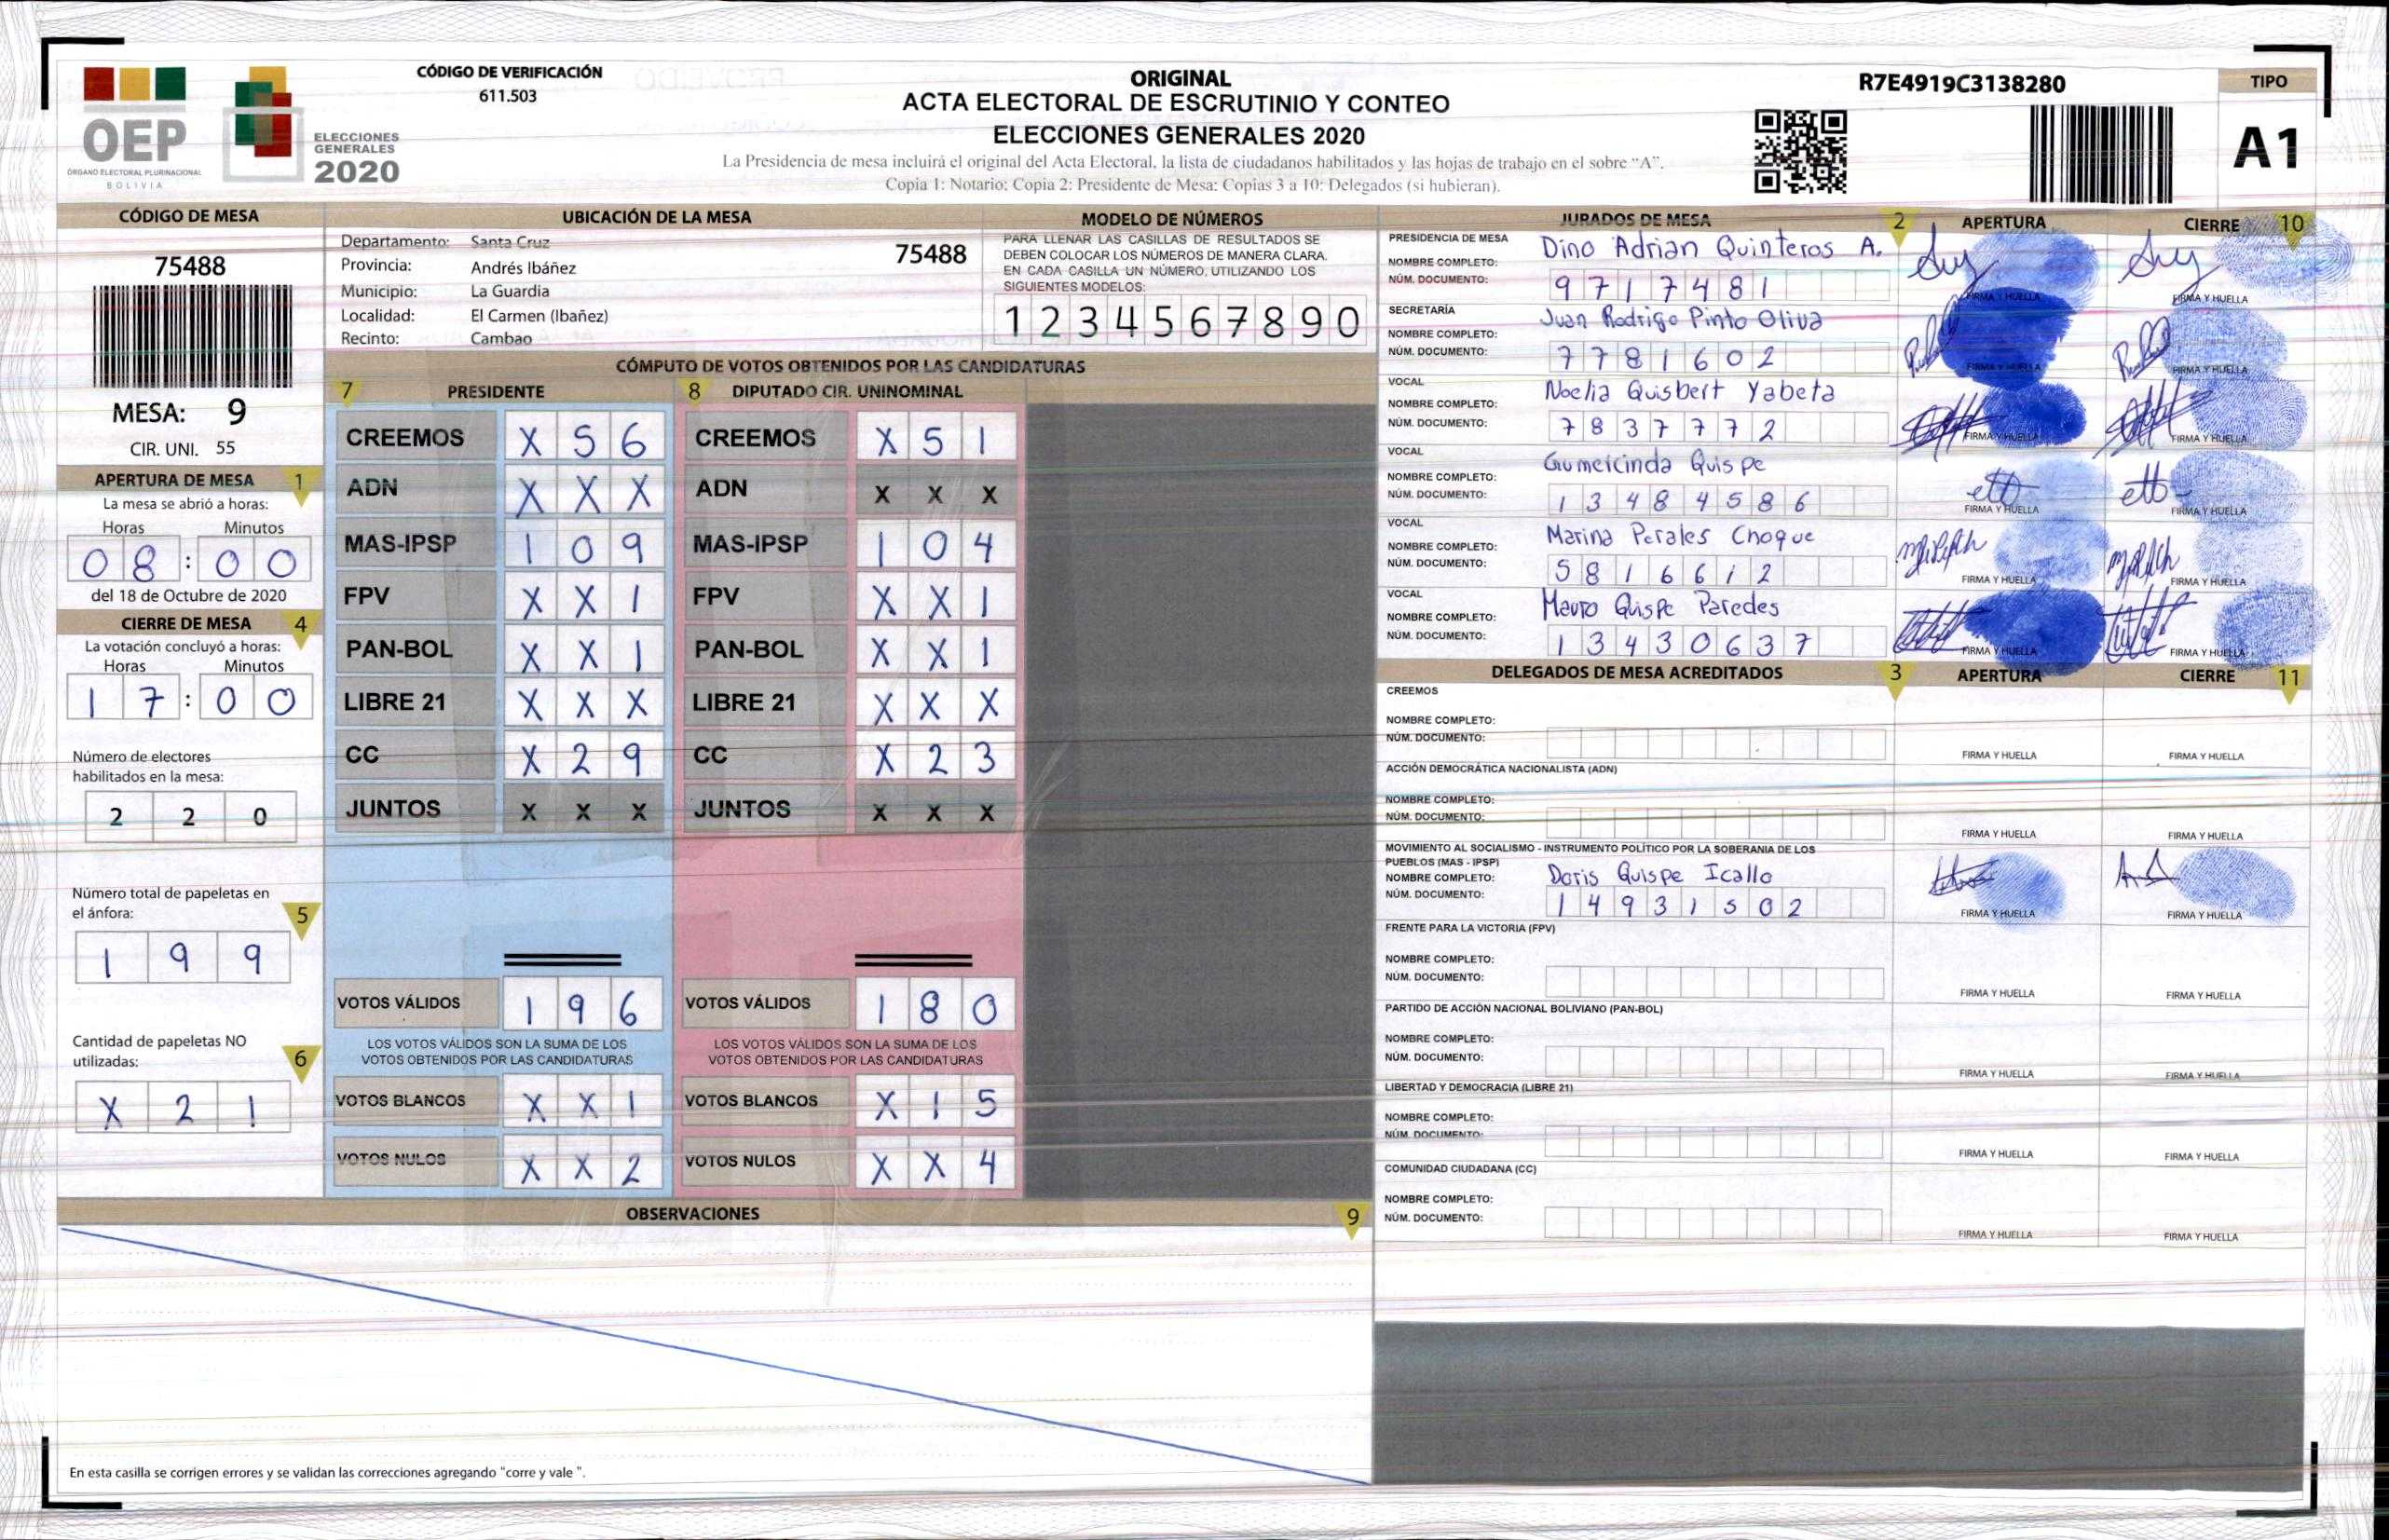 CÓDIGO DE VERIFICACIÓN
611.503
OEP
ÓRGANO ELECTORAL PLURINACIONAL
BOLIVIA
ELECCIONES
GENERALES
2020
ORIGINAL
ACTA ELECTORAL DE ESCRUTINIO Y CONTEO
ELECCIONES GENERALES 2020
La Presidencia de mesa incluirá el original del Acta Electoral, la lista de ciudadanos habilitados y las hojas de trabajo en el sobre "A".
Copia 1: Notario; Copia 2: Presidente de Mesa; Copias 3 a 10: Delegados (si hubieran).
R7E4919C3138280
TIPO
A1
CÓDIGO DE MESA
75488
MESA: 9
CIR. UNI. 55
APERTURA DE MESA 1
La mesa se abrió a horas:
Horas Minutos
0 8 : 0 0
del 18 de Octubre de 2020
CIERRE DE MESA 4
La votación concluyó a horas:
Horas Minutos
1 7 : 0 0
Número de electores
habilitados en la mesa:
2 2 0
Número total de papeletas en
el ánfora: 5
1 9 9
Cantidad de papeletas NO
utilizadas: 6
X 2 1
UBICACIÓN DE LA MESA
Departamento: Santa Cruz
Provincia: Andrés Ibáñez
Municipio: La Guardia
Localidad: El Carmen (Ibañez)
Recinto: Cambao
75488
MODELO DE NÚMEROS
PARA LLENAR LAS CASILLAS DE RESULTADOS SE
DEBEN COLOCAR LOS NÚMEROS DE MANERA CLARA.
EN CADA CASILLA UN NÚMERO, UTILIZANDO LOS
SIGUIENTES MODELOS:
1 2 3 4 5 6 7 8 9 0
CÓMPUTO DE VOTOS OBTENIDOS POR LAS CANDIDATURAS
7 PRESIDENTE 8 DIPUTADO CIR. UNINOMINAL
CREEMOS X 5 6 CREEMOS X 5 1
ADN X X X ADN X X X
MAS-IPSP 1 0 9 MAS-IPSP 1 0 4
FPV X X 1 FPV X X 1
PAN-BOL X X 1 PAN-BOL X X 1
LIBRE 21 X X X LIBRE 21 X X X
CC X 2 9 CC X 2 3
JUNTOS X X X JUNTOS X X X
VOTOS VÁLIDOS 1 9 6 VOTOS VÁLIDOS 1 8 0
LOS VOTOS VÁLIDOS SON LA SUMA DE LOS LOS VOTOS VÁLIDOS SON LA SUMA DE LOS
VOTOS OBTENIDOS POR LAS CANDIDATURAS VOTOS OBTENIDOS POR LAS CANDIDATURAS
VOTOS BLANCOS X X 1 VOTOS BLANCOS X 1 5
VOTOS NULOS X X 2 VOTOS NULOS X X 4
OBSERVACIONES 9
En esta casilla se corrigen errores y se validan las correcciones agregando "corre y vale ".
JURADOS DE MESA 2 APERTURA CIERRE 10
PRESIDENCIA DE MESA
NOMBRE COMPLETO: Dino Adrian Quinteros A.
NÚM. DOCUMENTO: 9 7 1 7 4 8 1
FIRMA Y HUELLA FIRMA Y HUELLA
SECRETARÍA
NOMBRE COMPLETO: Juan Rodrigo Pinto Oliva
NÚM. DOCUMENTO: 7 7 8 1 6 0 2
FIRMA Y HUELLA FIRMA Y HUELLA
VOCAL
NOMBRE COMPLETO: Noelia Quisbert Yabeta
NÚM. DOCUMENTO: 7 8 3 7 7 7 2
FIRMA Y HUELLA FIRMA Y HUELLA
VOCAL
NOMBRE COMPLETO: Gumercinda Quispe
NÚM. DOCUMENTO: 1 3 4 8 4 5 8 6
FIRMA Y HUELLA FIRMA Y HUELLA
VOCAL
NOMBRE COMPLETO: Marina Perales Choque
NÚM. DOCUMENTO: 5 8 1 6 6 1 2
FIRMA Y HUELLA FIRMA Y HUELLA
VOCAL
NOMBRE COMPLETO: Mauro Quispe Paredes
NÚM. DOCUMENTO: 1 3 4 3 0 6 3 7
FIRMA Y HUELLA FIRMA Y HUELLA
DELEGADOS DE MESA ACREDITADOS 3 APERTURA CIERRE 11
CREEMOS
NOMBRE COMPLETO:
NÚM. DOCUMENTO:
FIRMA Y HUELLA FIRMA Y HUELLA
ACCIÓN DEMOCRÁTICA NACIONALISTA (ADN)
NOMBRE COMPLETO:
NÚM. DOCUMENTO:
FIRMA Y HUELLA FIRMA Y HUELLA
MOVIMIENTO AL SOCIALISMO - INSTRUMENTO POLÍTICO POR LA SOBERANIA DE LOS
PUEBLOS (MAS - IPSP)
NOMBRE COMPLETO: Doris Quispe Icallo
NÚM. DOCUMENTO: 1 4 9 3 1 5 0 2
FIRMA Y HUELLA FIRMA Y HUELLA
FRENTE PARA LA VICTORIA (FPV)
NOMBRE COMPLETO:
NÚM. DOCUMENTO:
FIRMA Y HUELLA FIRMA Y HUELLA
PARTIDO DE ACCIÓN NACIONAL BOLIVIANO (PAN-BOL)
NOMBRE COMPLETO:
NÚM. DOCUMENTO:
FIRMA Y HUELLA FIRMA Y HUELLA
LIBERTAD Y DEMOCRACIA (LIBRE 21)
NOMBRE COMPLETO:
NÚM. DOCUMENTO:
FIRMA Y HUELLA FIRMA Y HUELLA
COMUNIDAD CIUDADANA (CC)
NOMBRE COMPLETO:
NÚM. DOCUMENTO:
FIRMA Y HUELLA FIRMA Y HUELLA